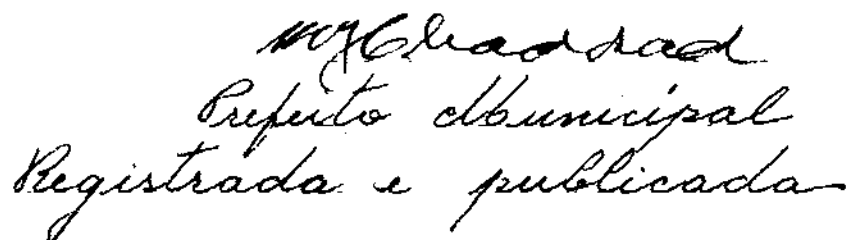 Prefeito Municipal
Registrada e publicada